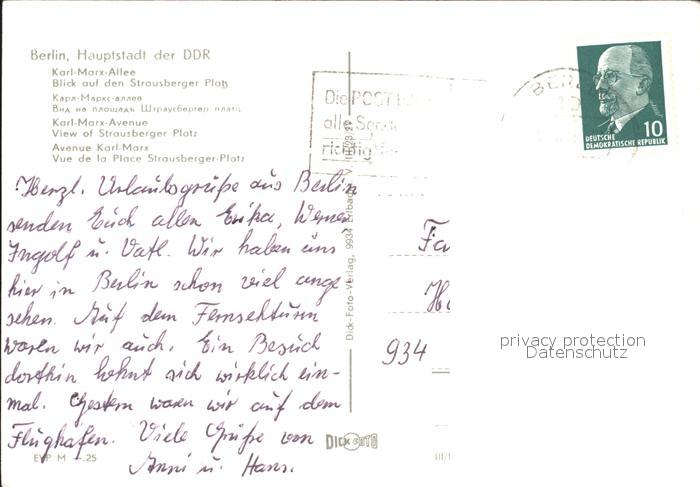 Berlin, Hauptstadt der DDR
Karl-Marx-Allee
Blick auf den Strausberger Platz
Карл-Маркс-аллее
Вид на площадь Штраусбергер платц
Karl-Marx-Avenue
View of Strausberger Platz
Avenue Karl-Marx
Vue de la Place Strausberger-Platz
Herzl. Urlaubsgrüße aus Berlin
senden Euch allen Erika, Werner
Ingolf u. Vatl. Wir haben uns
hier in Berlin schon viel ange
sehen. Auf dem Fernsehturm
waren wir auch. Ein Besuch
dorthin lohnt sich wirklich ein-
mal. Gestern waren wir auf dem
Flughafen. Viele Grüße von
Anni u. Hans.
EVP M -.25
Dick-Foto-Verlag, 9934 Erlbach
DICK FOTO
III/1
Die POST
alle
richtig
BER
10
DEUTSCHE
DEMOKRATISCHE REPUBLIK
Fa
H
934
privacy protection
Datenschutz